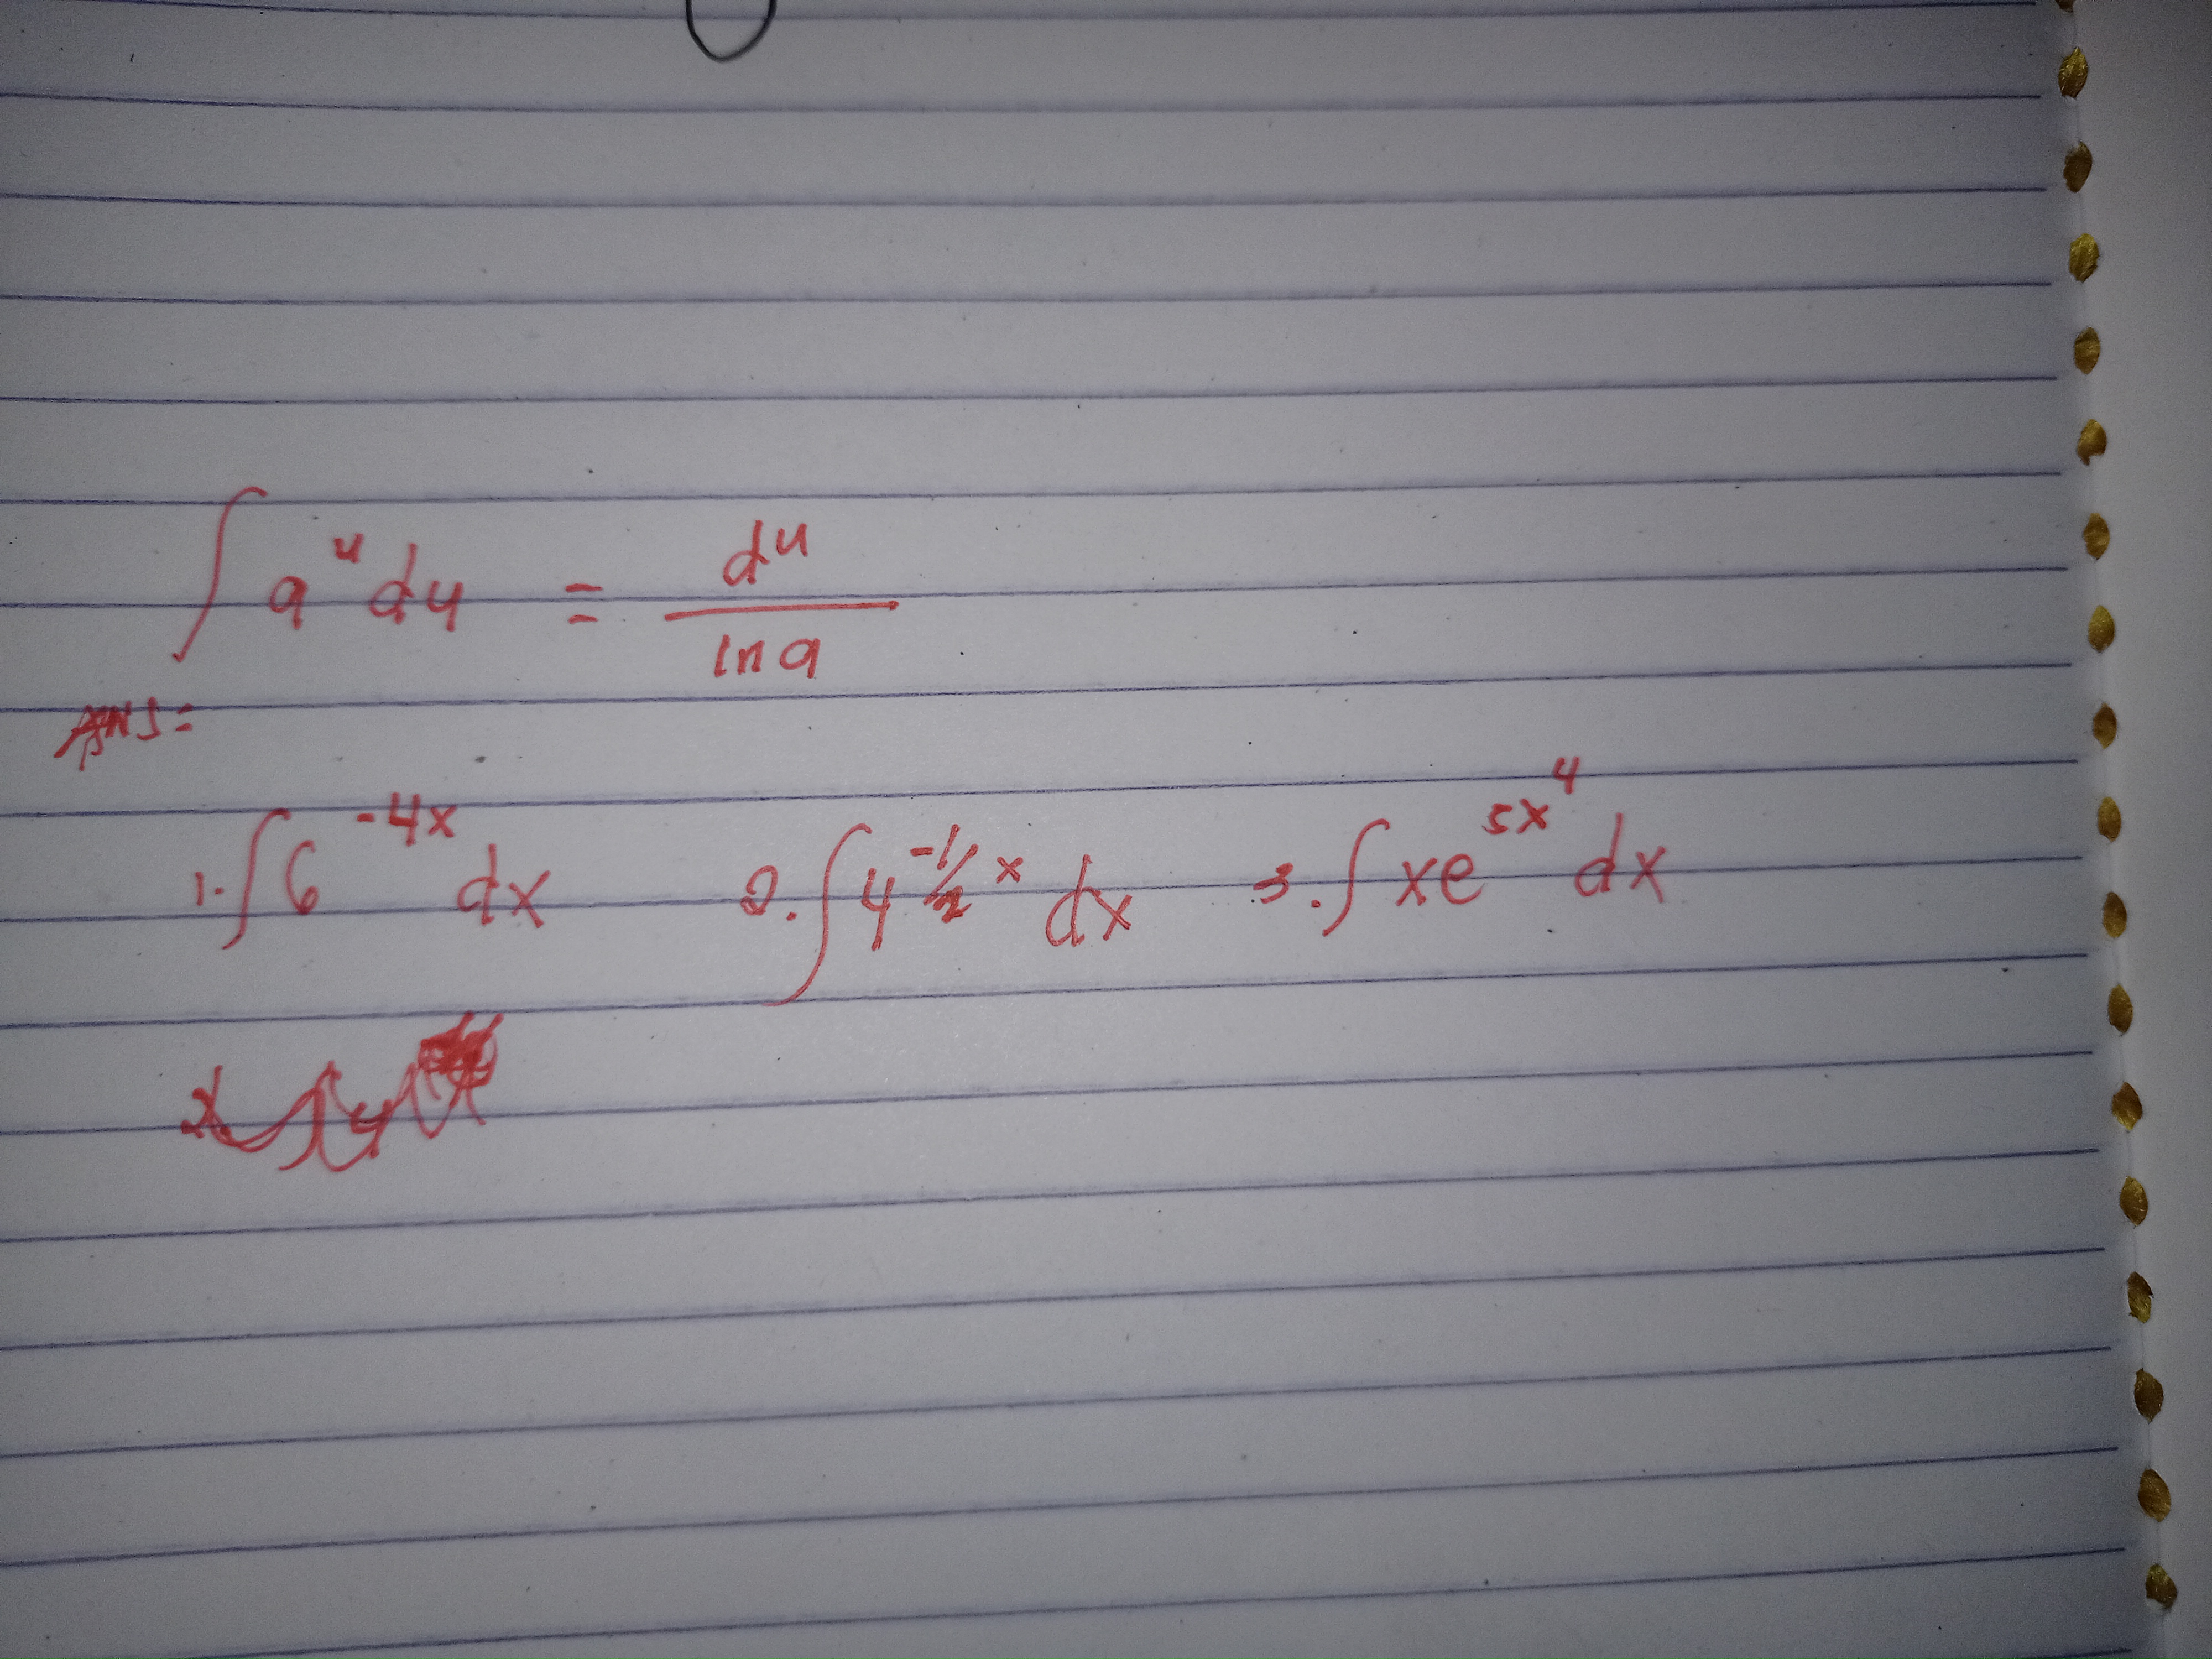 ∫ a^u du = d^u / ln a
ANS =
1. ∫ 6^-4x dx 2. ∫ 4^-1/2 x dx 3. ∫ xe^5x^4 dx